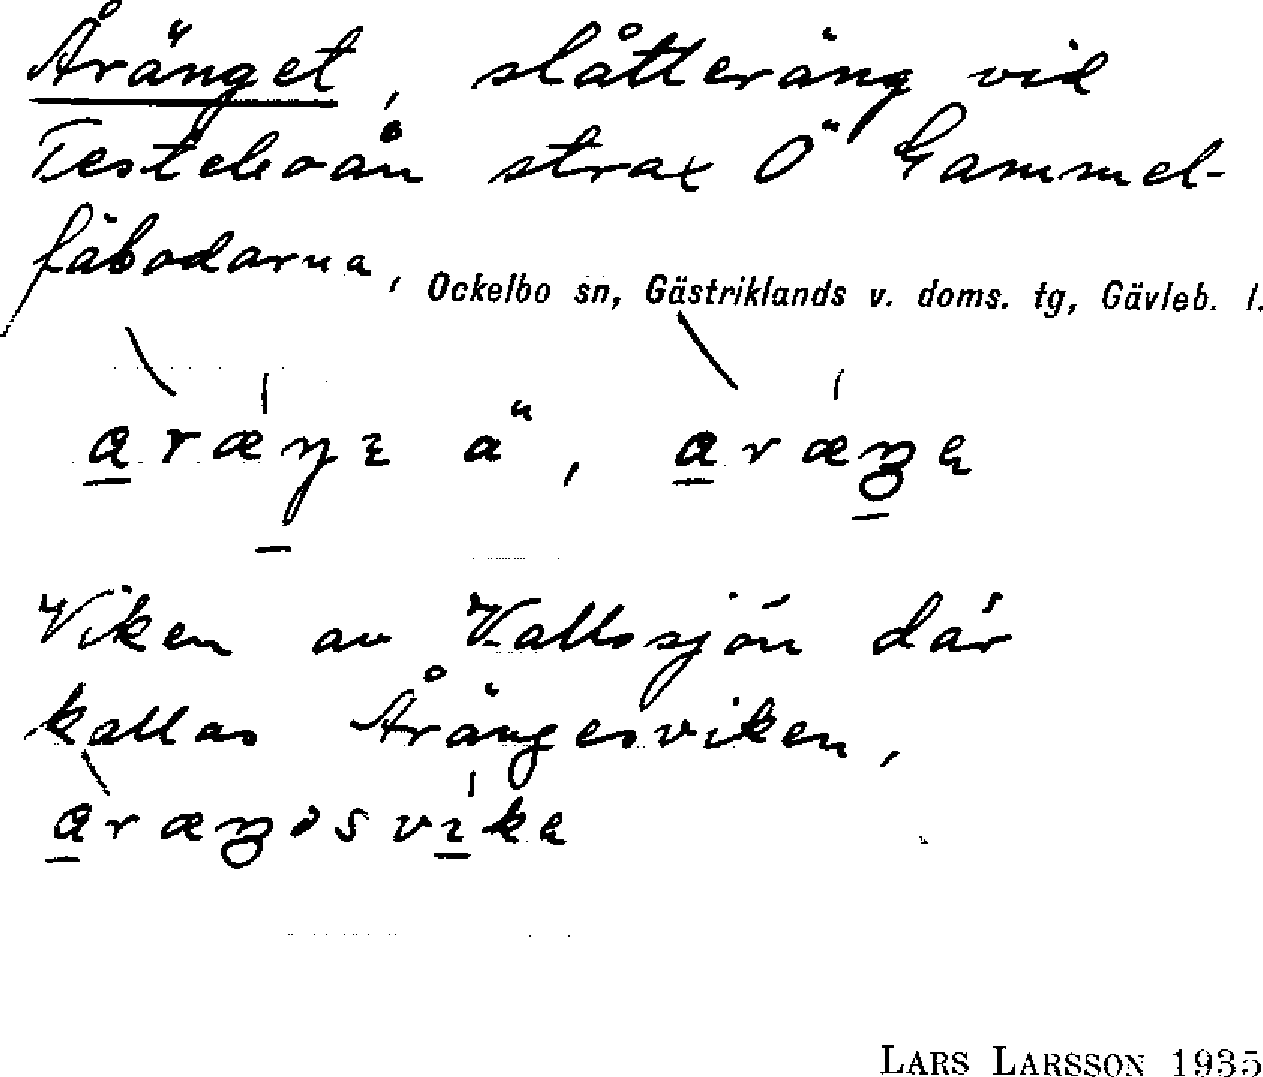 Åränget, slåtteräng vid
Testeboån strax Ö Gammel-
fäbodarna, Ockelbo sn, Gästriklands v. doms. tg, Gävleb. l.
Viken av Vallsjön där
kallas Årängesviken,
LARS LARSSON 1935